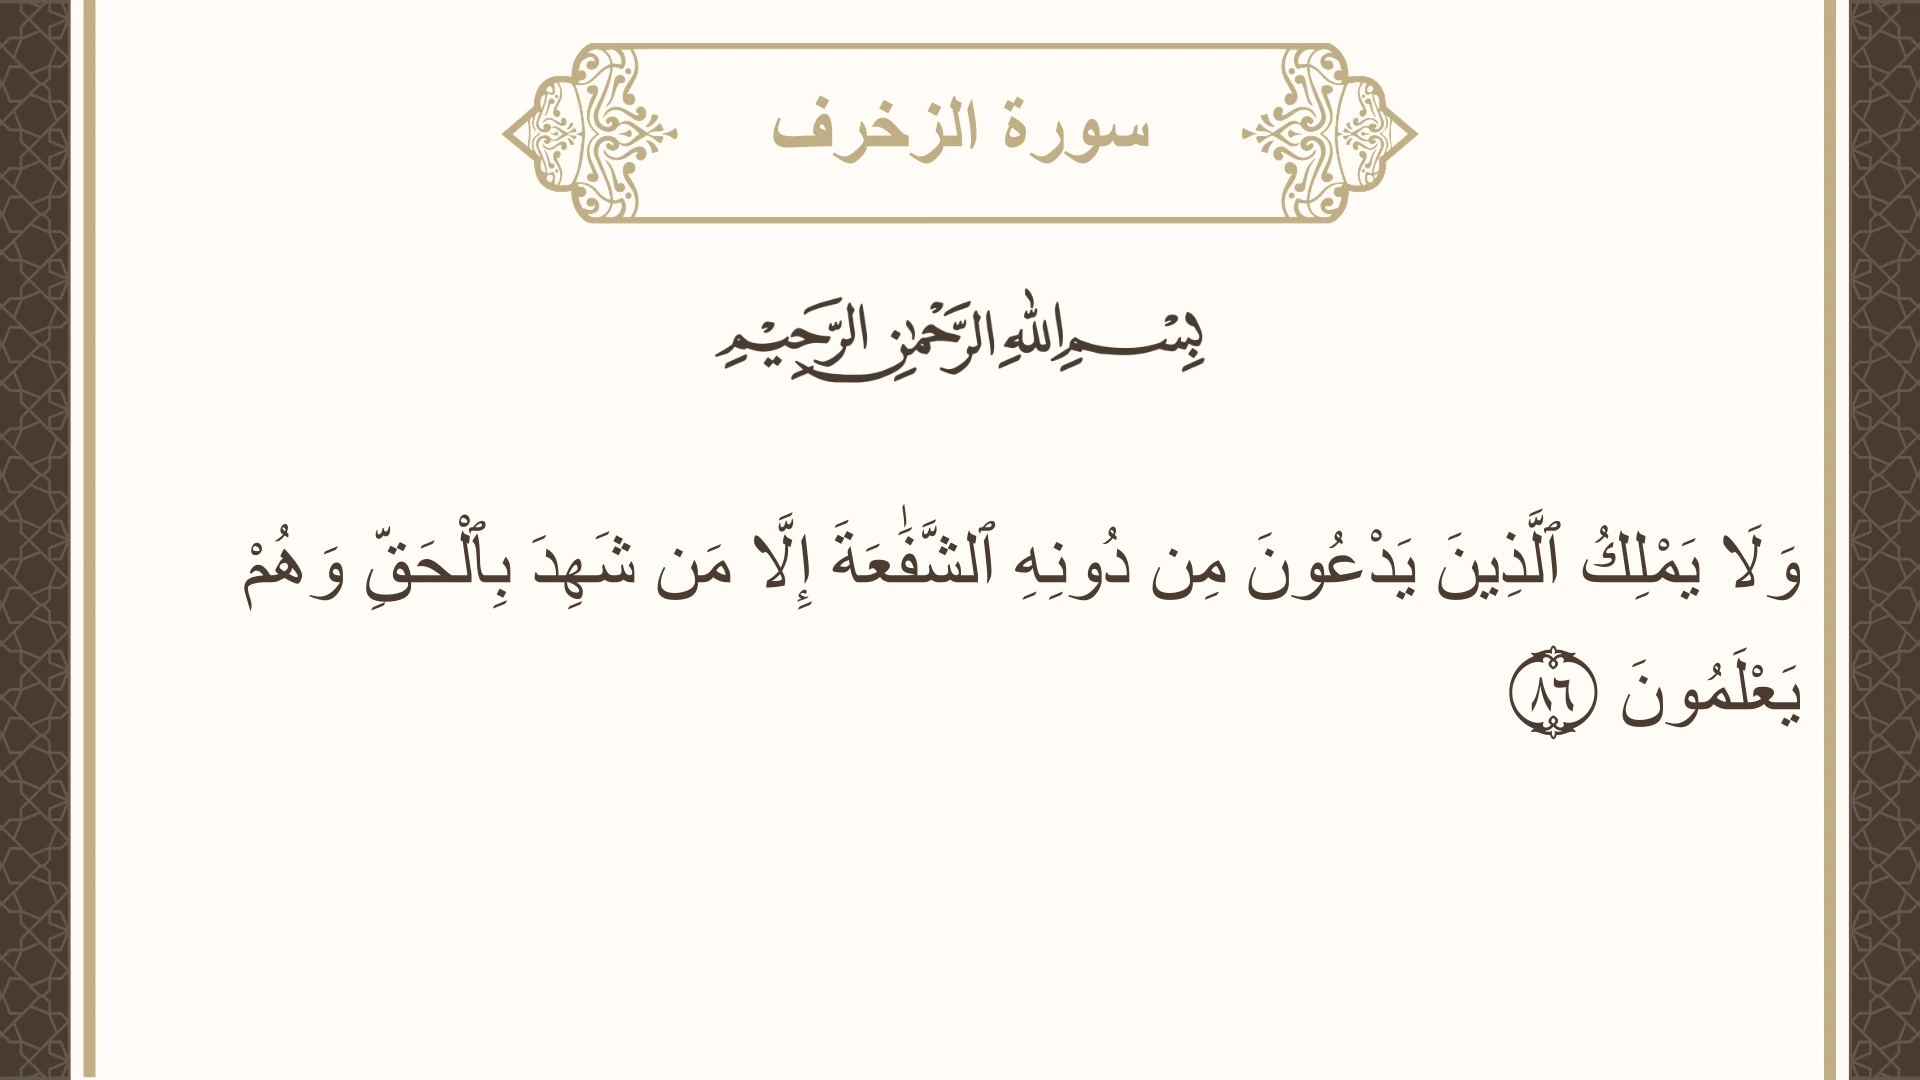 سورة الزخرف
بِسْمِ اللهِ الرَّحْمٰنِ الرَّحِيْمِ
وَلَا يَمْلِكُ ٱلَّذِينَ يَدْعُونَ مِن دُونِهِ ٱلشَّفَٰعَةَ إِلَّا مَن شَهِدَ بِٱلْحَقِّ وَهُمْ
يَعْلَمُونَ ٨٦